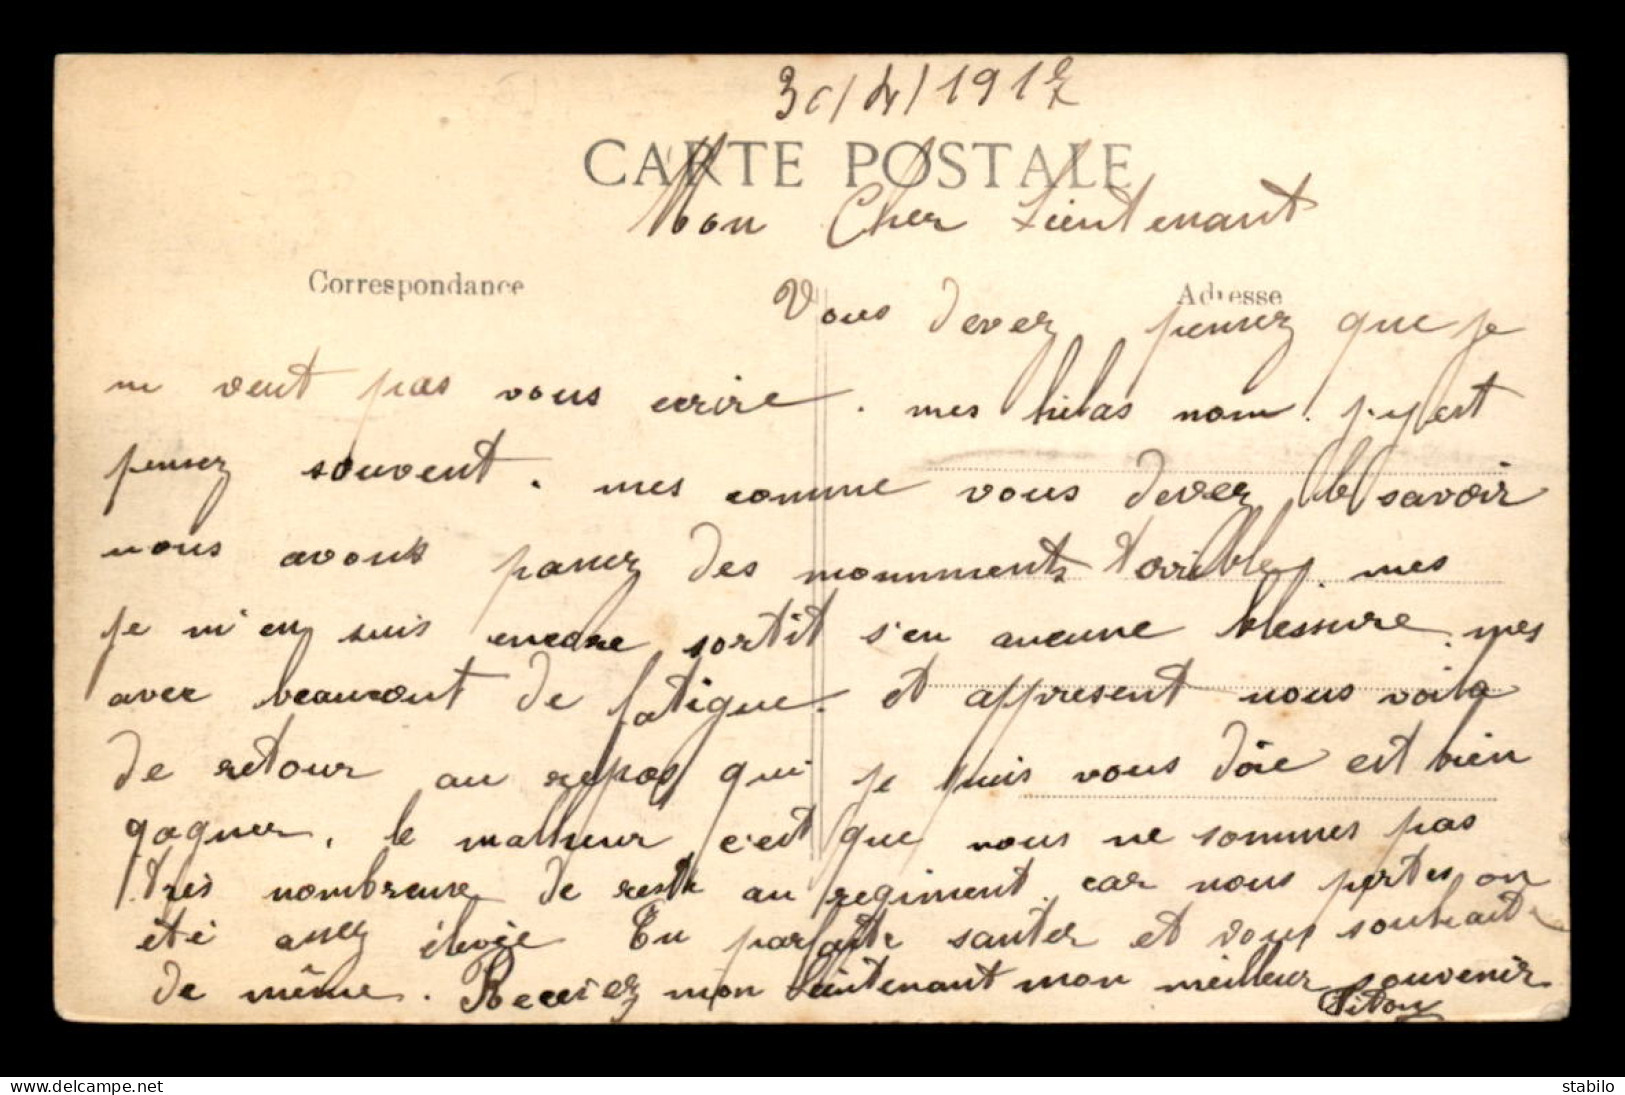 30/4/1917
CARTE POSTALE
Mon Cher Lieutenant
Correspondance
Adresse
Vous devez pensez que je
m veut pas vous ecrire. mes hélas nom. j'y est
pensez souvent. mes comme vous devez le savoir
nous avons passez des monuments torrible. mes
je m'en suis encore sortit s'en aucune blessure. mes
avec beaucout de fatigue. et appresent nous voila
de retour au repos qui je puis vous dôie est bien
gagner. le malheur c'est que nous ne sommes pas
très nombreuse de reste au regiment. car nous pertes on
été assez élevée En parfaite santer et vous souhaite
de même. Recevez mon Lieutenant mon meilleur souvenir
delcampe.net
stabilo